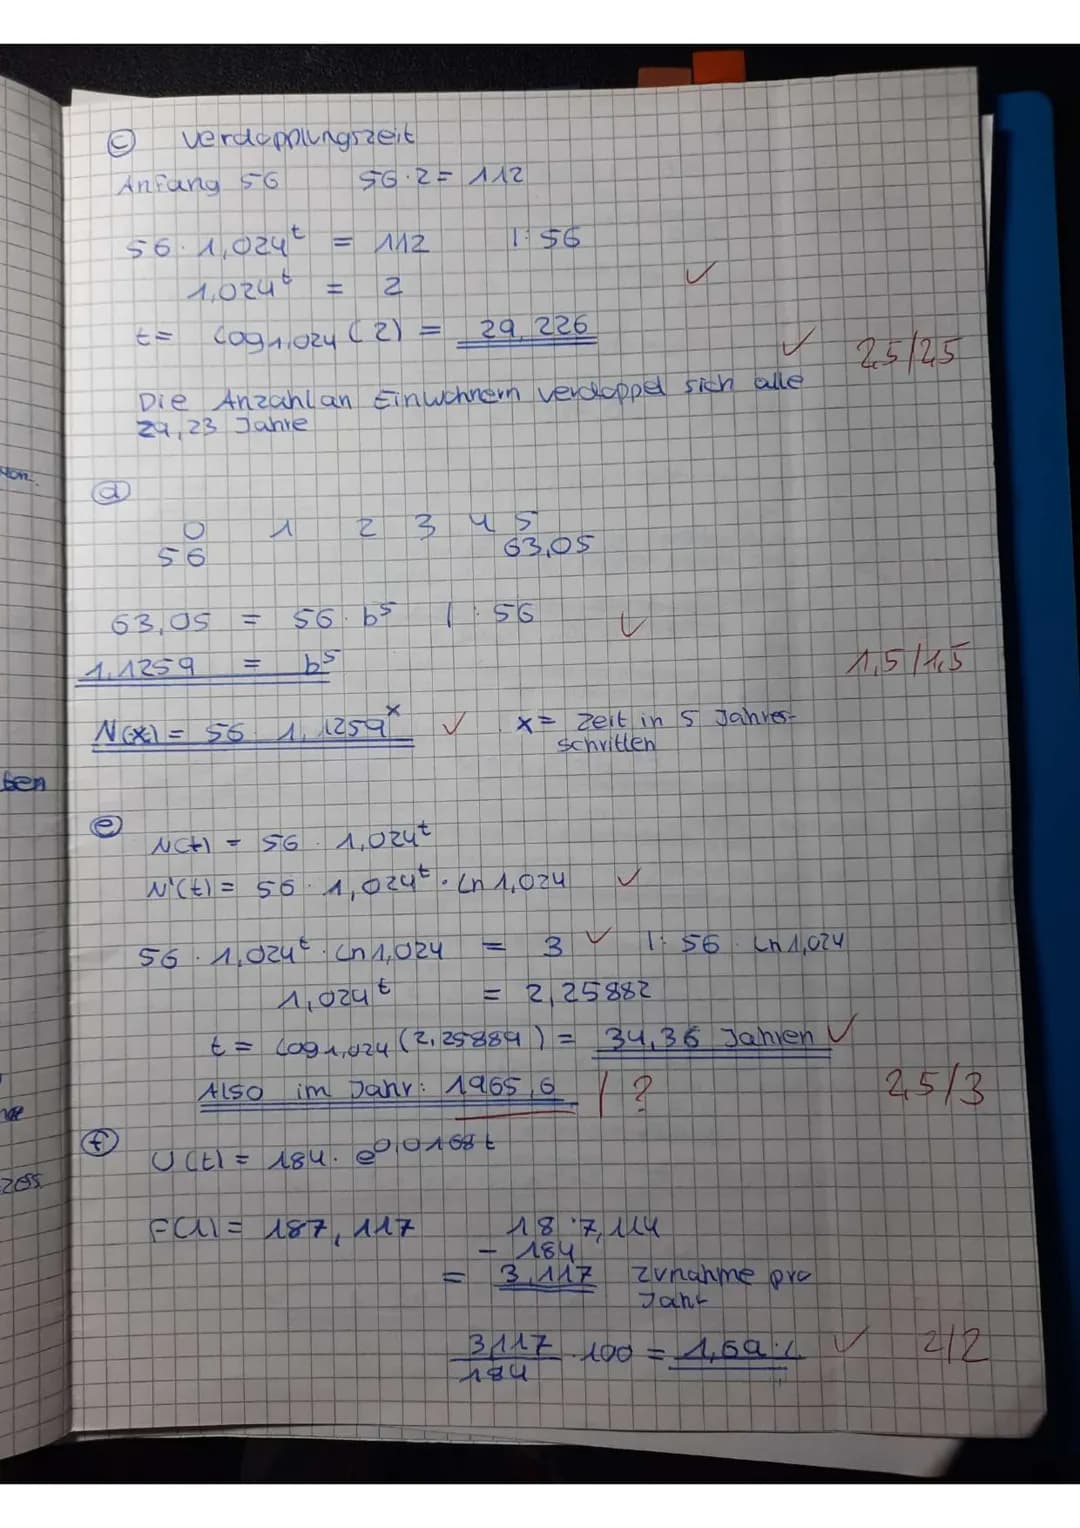 c) Verdopplungszeit
Anfang 56 56·2 = 112
56 · 1,024^t = 112 |:56
1,024^t = 2 ✓
t = log1,024 (2) = 29,226 ✓ 2,5/2,5
Die Anzahl an Einwohnern verdoppel sich alle
29,23 Jahre
d)
0 1 2 3 4 5
56 63,05
63,05 = 56 · b^5 | : 56 ✓
1,1259 = b^5 1,5/1,5
N(x) = 56 · 1,1259^x ✓ x = Zeit in 5 Jahres-
schritten
ben
e)
N(t) = 56 · 1,024^t
N'(t) = 56 · 1,024^t · ln 1,024 ✓
56 · 1,024^t · ln 1,024 = 3 ✓ |: 56 · ln 1,024
1,024^t = 2,25882
t = log1,024 (2,25889) = 34,36 Jahren ✓
Also im Jahr: 1965,6 / ? 2,5/3
f)
U(t) = 184 · e^0,0168t
F(1) = 187,117 18·7,114
- 184
= 3,117 Zunahme pro
Jahr
3,117/184 · 100 = 1,69 % ✓ 2/2